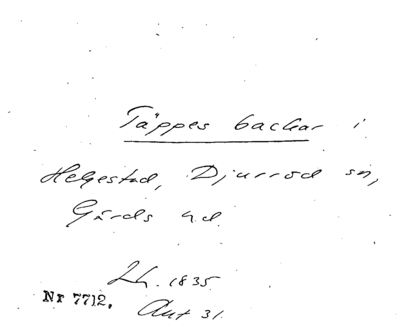 Täppes backar i
Helgestad, Djurröd sn,
Gärds hd.
Lh. 1835
Nr 7712.
Akt 31.